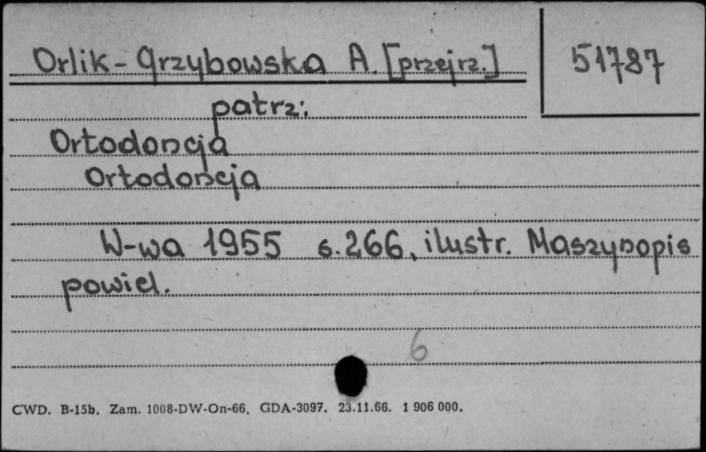 Orlik-Grzybowska A. [przejrz.]
51787
patrz:
Ortodoncja
Ortodoncja
W-wa 1955 s. 266, ilustr. Maszynopis
powiel.
6
CWD. B-15b. Zam. 1008-DW-On-66. GDA-3097. 23.11.66. 1 906 000.